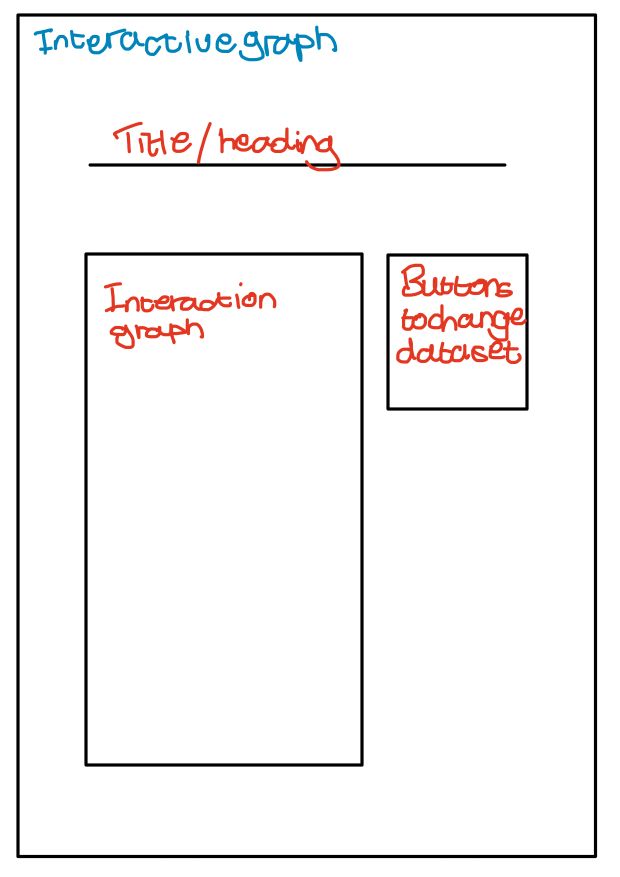 Interactive graph
Title/heading
Interaction
graph
Buttons
to change
dataset